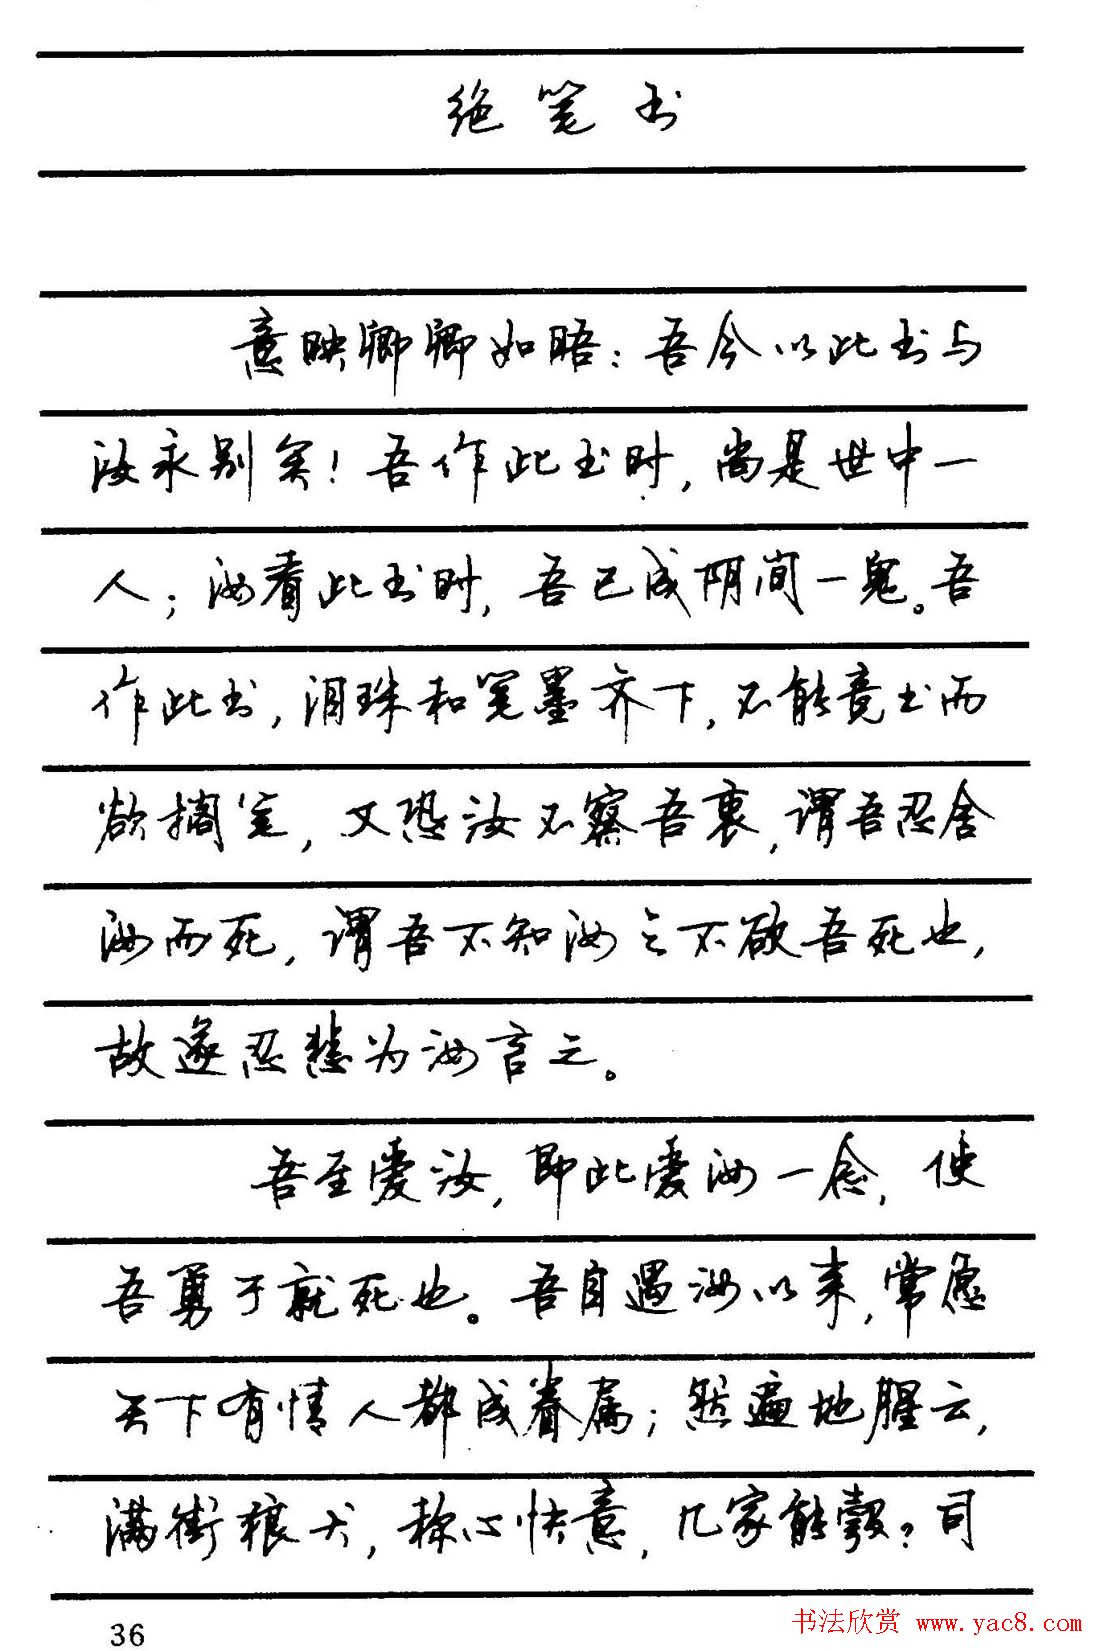 绝笔书
意映卿卿如晤：吾今以此书与
汝永别矣！吾作此书时，尚是世中一
人；汝看此书时，吾已成阴间一鬼。吾
作此书，泪珠和笔墨齐下，不能竟书而
欲搁笔，又恐汝不察吾衷，谓吾忍舍
汝而死，谓吾不知汝之不欲吾死也，
故遂忍悲为汝言之。
吾至爱汝，即此爱汝一念，使
吾勇于就死也。吾自遇汝以来，常愿
天下有情人都成眷属；然遍地腥云，
满街狼犬，称心快意，几家能彀？司
36
书法欣赏 www.yac8.com